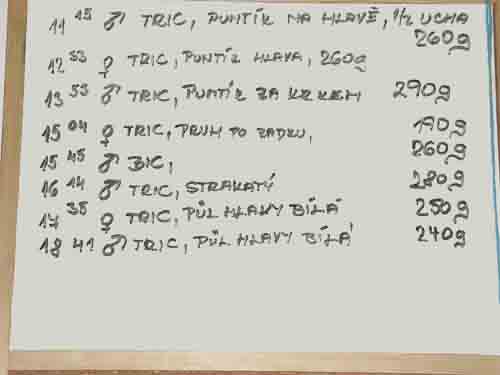 11 15 ♂ TRIC, PUNTÍK NA HLAVĚ, 1/2 UCHA
260g
12 53 ♀ TRIC, PUNTÍK HLAVA, 260g
13 53 ♂ TRIC, PUNTÍK ZA KRKEM 290g
15 04 ♀ TRIC, PRUH PO ZADKU, 190g
15 45 ♂ BIC, 260g
16 14 ♂ TRIC, STRAKATÝ 280g
17 35 ♀ TRIC, PŮL HLAVY BÍLÁ 250g
18 41 ♂ TRIC, PŮL HLAVY BÍLÁ 240g